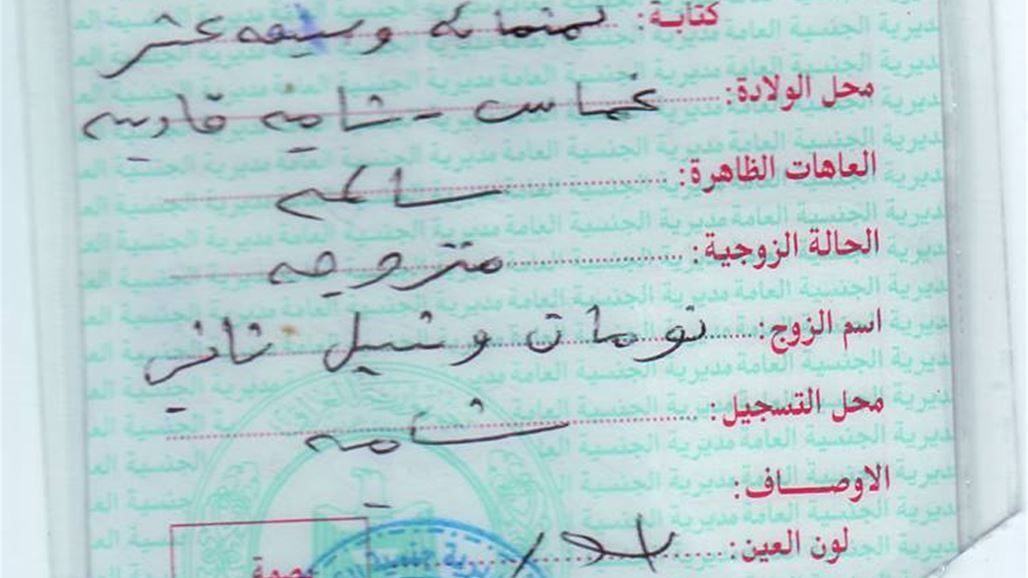 كتابة: تسعمائة وسبعة عشر
محل الولادة: غماس - شامية قادسية
العاهات الظاهرة: سالمة
الحالة الزوجية: متزوجة
اسم الزوج: نومان وشيل
محل التسجيل: شامية
الاوصاف:
لون العين: اسود
بصمة